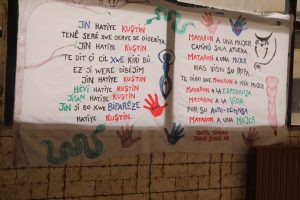 JIN HATIYE KUŞTIN
TENÊ SERÊ XWE DERVE DI DIGERIYA
JIN HATIYE KUŞTIN
TE DIT ÇI CIL XWE KIRI BÛ
EZ JI WERE DIBÊJIM
JIN HATIYE KUŞTIN
HÊVÎ HATIYE KUŞTIN
JIYAN HATIYE KUŞTIN
JIN JI BO XWE BIPARÊZE
HATIYE KUŞTIN
MATARON A UNA MUJER
CAMINÓ SOLA AFUERA
MATARON A UNA MUJER
HAS VISTO SU ROPA
TE DIGO QUE MATARON A UNA MUJER
MATARON A LA ESPERANZA
MATARON A LA VIDA
POR SU AUTO-DEFENSA
MATARON A UNA MUJER